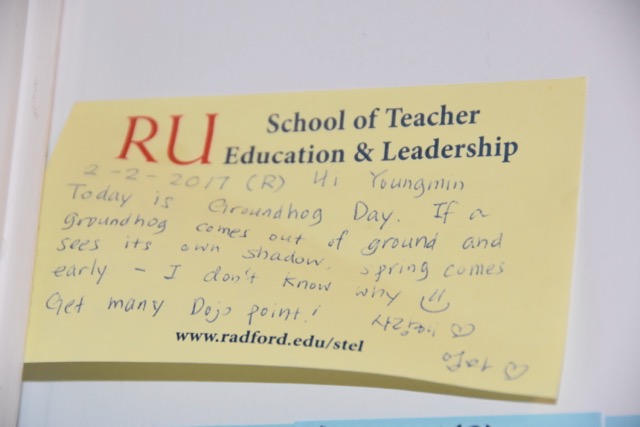 RU School of Teacher
Education & Leadership
2-2-2017 (R) Hi Youngmin
Today is Groundhog Day. If a
groundhog comes out of ground and
sees its own shadow, spring comes
early - I don't know why
Get many Dojo point! 사랑해 ♡
엄마 ♡
www.radford.edu/stel